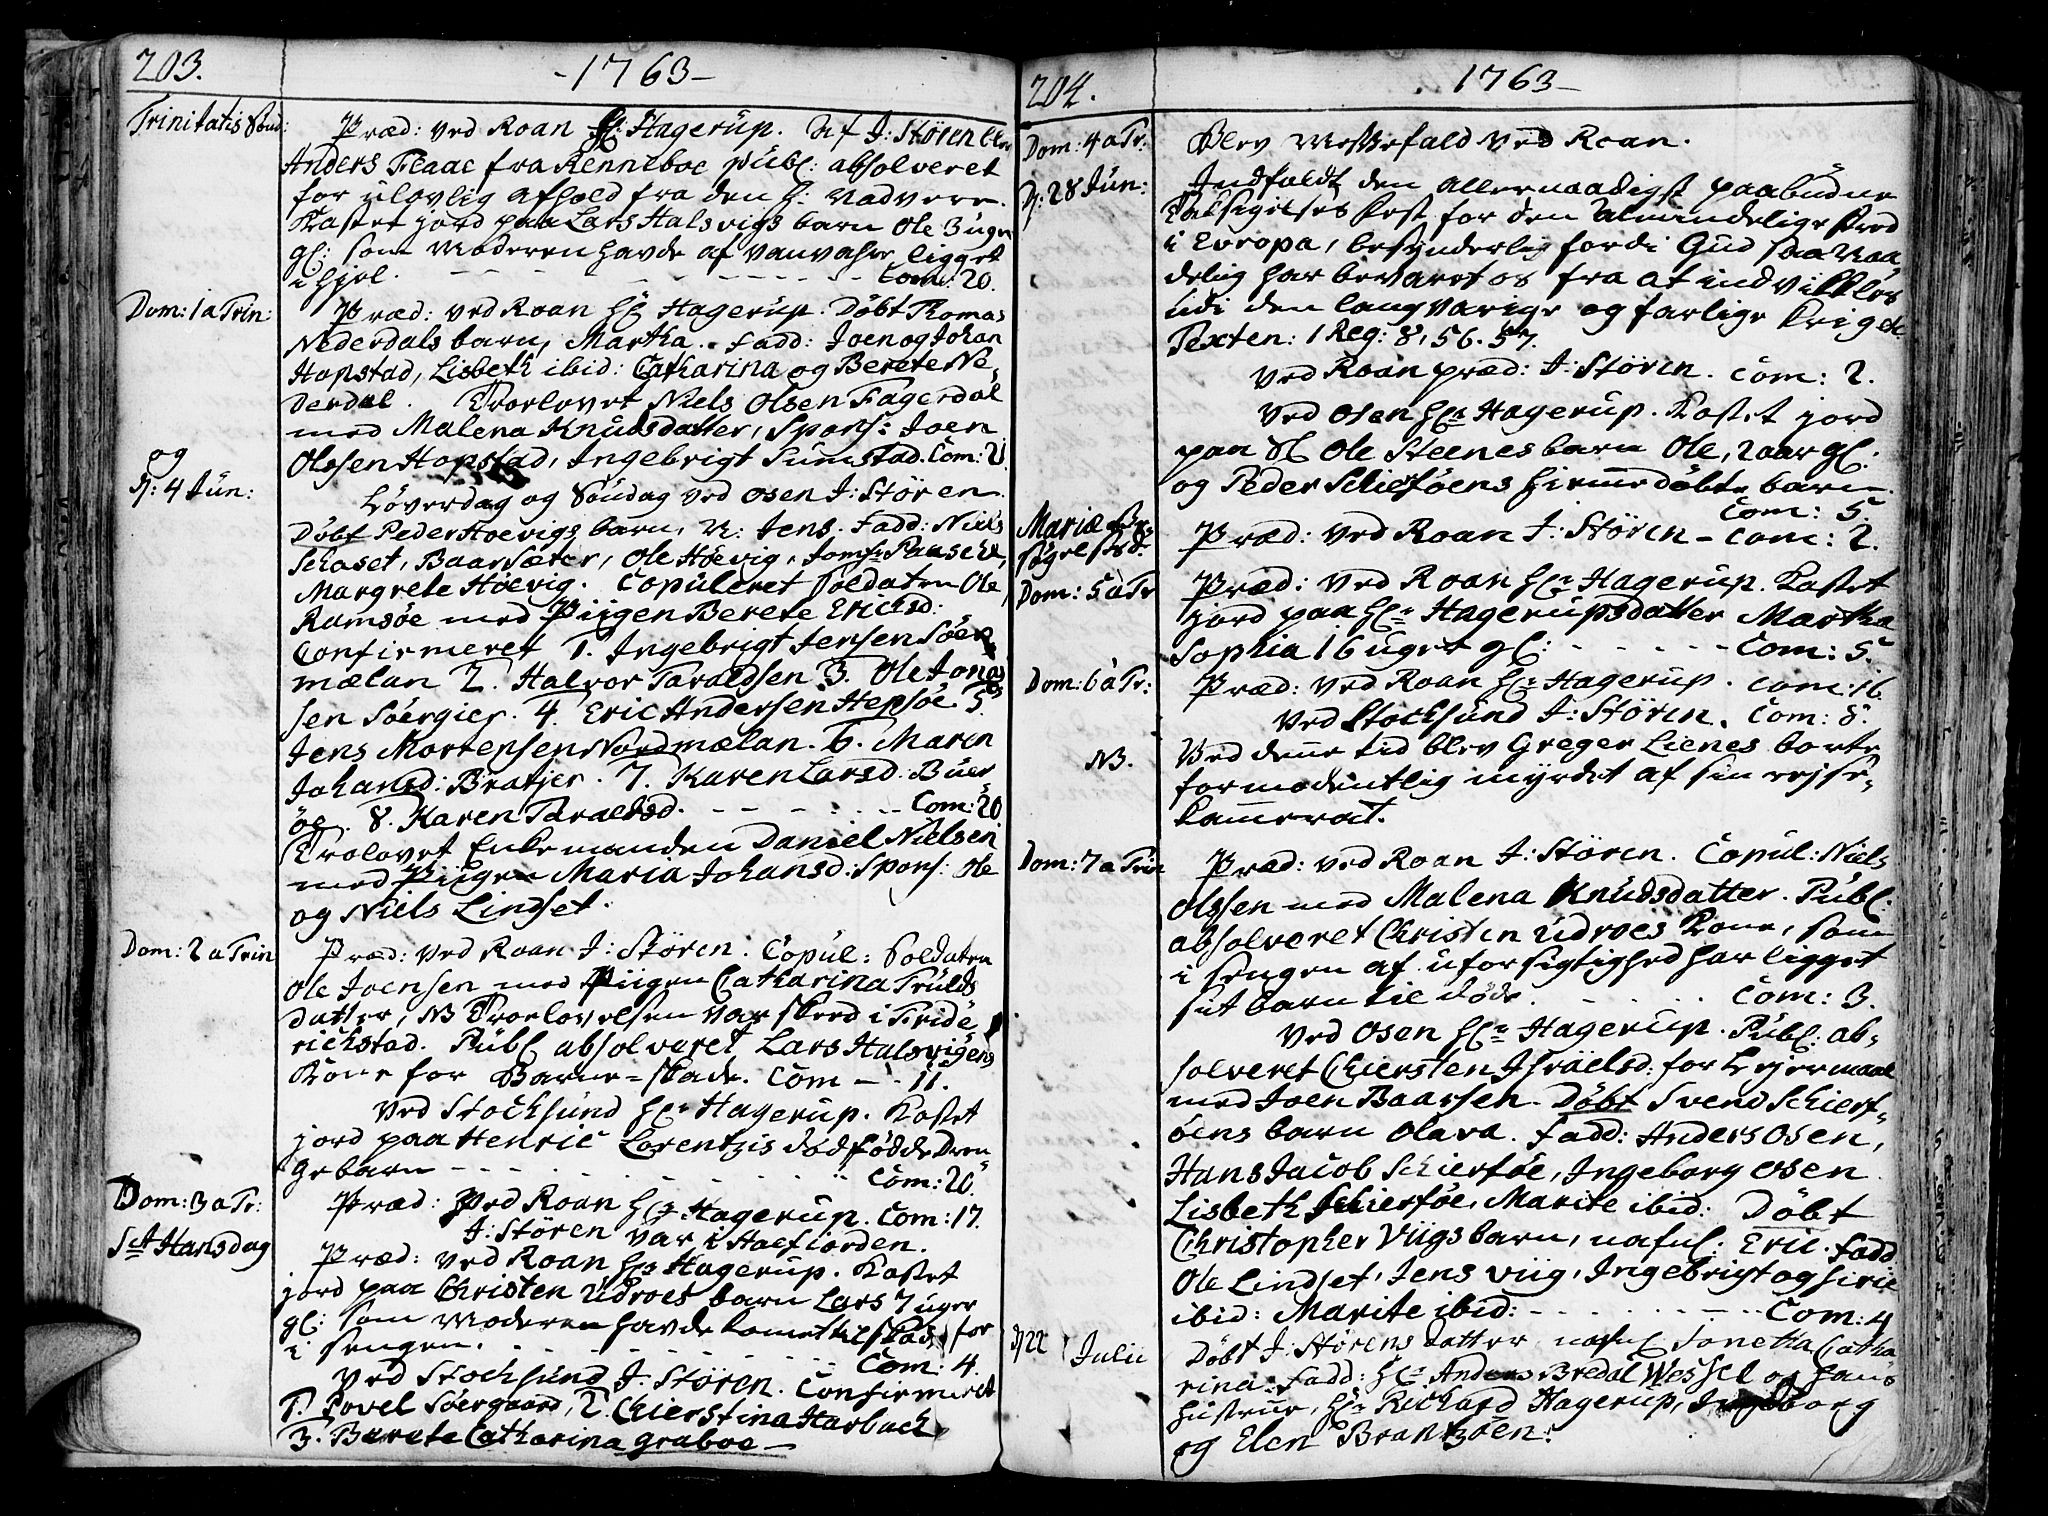 203.
-1763-
Trinitatis Sønd:
Præd: ved Roan Hr: Hagerup. Af J: Støren blev
Anders Flaae fra Renneboe publ: absolveret
for ulovlig afhold fra den H: Nadvere.
Kastet jord paa Lars Halsvigs barn Ole 3 uger
gl: som Moderen havde af vanvahre ligget
ihjel. Com: 20.
Dom: 1 a Trin:
Præd: ved Roan Hr: Hagerup. Døbt Thomas
Nederdals barn, Martha. Fadd: Joen og Johan
Hopstad, Lisbeth ibid: Catharina og Berete Ne-
derdal. Troelovet Niels Olsen Fagerdal
med Malena Knudsdatter, Spons: Joen
Olssen Hopstad, Ingebrigt Sumstad. Com: 21
og
d: 4 Jun:
Løverdag og Søndag ved Osen J: Støren
Døbt Peder Hoevigs barn, N: Jens. Fadd: Niels
Schaset, Baar Sæter, Ole Høevig, Jomfr Paasche,
Margrete Høevig. Copuleret Soldaten Ole
Ramsøe med Piigen Berete Ericsd:
Confirmeret 1. Ingebrigt Jensen Søer
mælan 2. Halvor Taraldsen 3. Ole Jonas
sen Søergier. 4. Eric Andersen Hepsøe 5.
Jens Mortensen Nordmælan. 6. Marin
Johansd: Bratjer. 7. Karen Larsd: Buer
øe. 8. Karen Taraldsd. Com: 20
Trolovet Enkemanden Daniel Nielsen
med Piigen Maria Johansd: Spons: Ole
og Niels Lindset.
Dom: 2 a Trin
Præd: ved Roan J: Støren. Copul: Soldaten
Ole Joensen med Piigen Catharina Truids
datter, NB Troelovelsen var skeed i Fride-
richstad. Publ absolveret Lars Halsvigens
Kone for Barne-skade. Com - 11.
Ved Stocksund Hr Hagerup. Kastet
jord paa Henric Lorentzis dødfødde Dren
gebarn Com: 20.
Dom: 3 a Tr:
Præd: Ved Roan Hr Hagerup. Com: 17.
J: Støren var i Aaefiorden.
Sct Hansdag
Præd: ved Roan Hr Hagerup. Kastet
jord paa Christen Udroes barn Lars 7 uger
gl: som Moderen havde kommet til skade for
i sengen. Com: 4.
Ved Stocksund J: Støren. Confirmeret
1. Povel Søergaard, 2. Chierstina Harbach
3. Berete Catharina graboe
204.
1763-
Dom: 4 a Tr:
Blev Messefald ved Roan.
d: 28 Jun:
Indfaldt den allernaadigst paabudne
Taksigelses Fest for den Almindelige Fred
i Evropa, besynderlig fordi Gud saa Naa
delig har bevaret os fra at indvikles
udi den langvarige og farlige Krig etc
Texten: 1 Reg: 8, 56. 57.
Ved Roan præd: J: Støren. Com: 2.
Ved Osen Hr Hagerup. Kastet jord
paa Sl Ole Steenes barn Ole, 2 aar gl:
og Peder Schiefsøens hiemmedøbte barn
Com: 5.
Mariæ Be-
søgelsesd.
Præd: ved Roan J: Støren - Com: 2.
Dom: 5 a Tr
Præd: ved Roan Hr Hagerup. Kastet
jord paa Hr Hagerups datter Martha
Sophia 16 uger gl: Com: 5.
Dom: 6 a Tr:
Præd: ved Roan Hr Hagerup. Com: 16.
Ved Stocksund J: Støren. Com: 8.
NB.
Ved denne tid blev Greger Lienes borte
formodentlig myrdet af sin rejse-
kammerat.
Dom: 7 a Trin
Præd: ved Roan J: Støren. Copul: Niels
Olssen med Malena Knudsdatter. Publ.
absolveret Christen Udroes Kone, som
i sengen af uforsigtighed har ligget
sit barn til døde. Com: 3.
Ved Osen Hr Hagerup. Publ: ab-
solveret Chiersten Israelsd: for Lejermaal
med Joen Baarsen. Døbt Svend Schierf-
øens barn Olava. Fadd: Anders Osen,
Hans Jacob Schierføe, Ingeborg Osen
Lisbeth Schierføe, Marite ibid: Døbt
Christopher Viigs barn, nafnl: Eric. Fadd
Ole Lindset, Jens Viig, Ingebrigt og Sirie
ibid: Marite ibid: Com: 4
d 22 Julii
Døbt J: Størens datter nafnl Jonetha Catha
rina. Fadd: Hr Anders Bredal Wessel og hans
Hustrue, Hr Richard Hagerup, Ingeborg
og Elen Brantzøen: